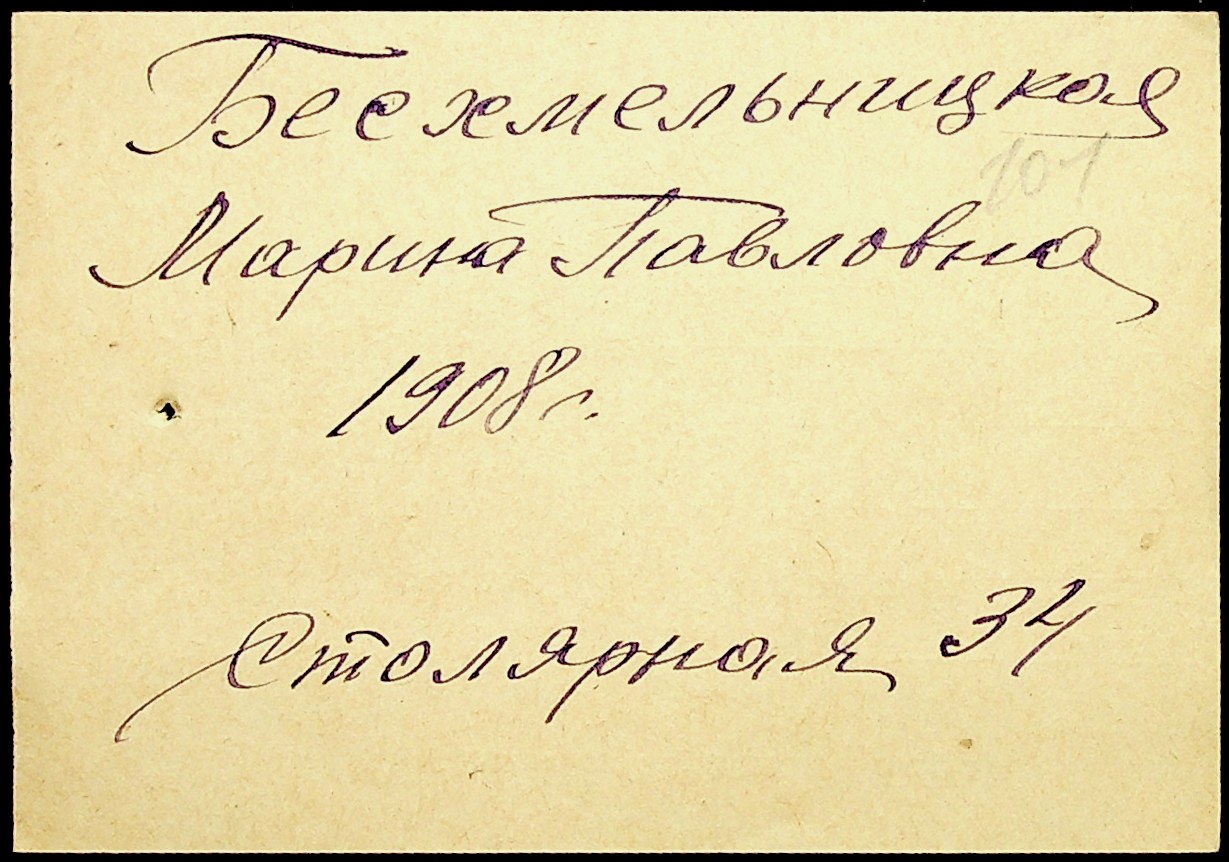 Бесхмельницкая
101
Марина Павловна
1908 г.
Столярная 34